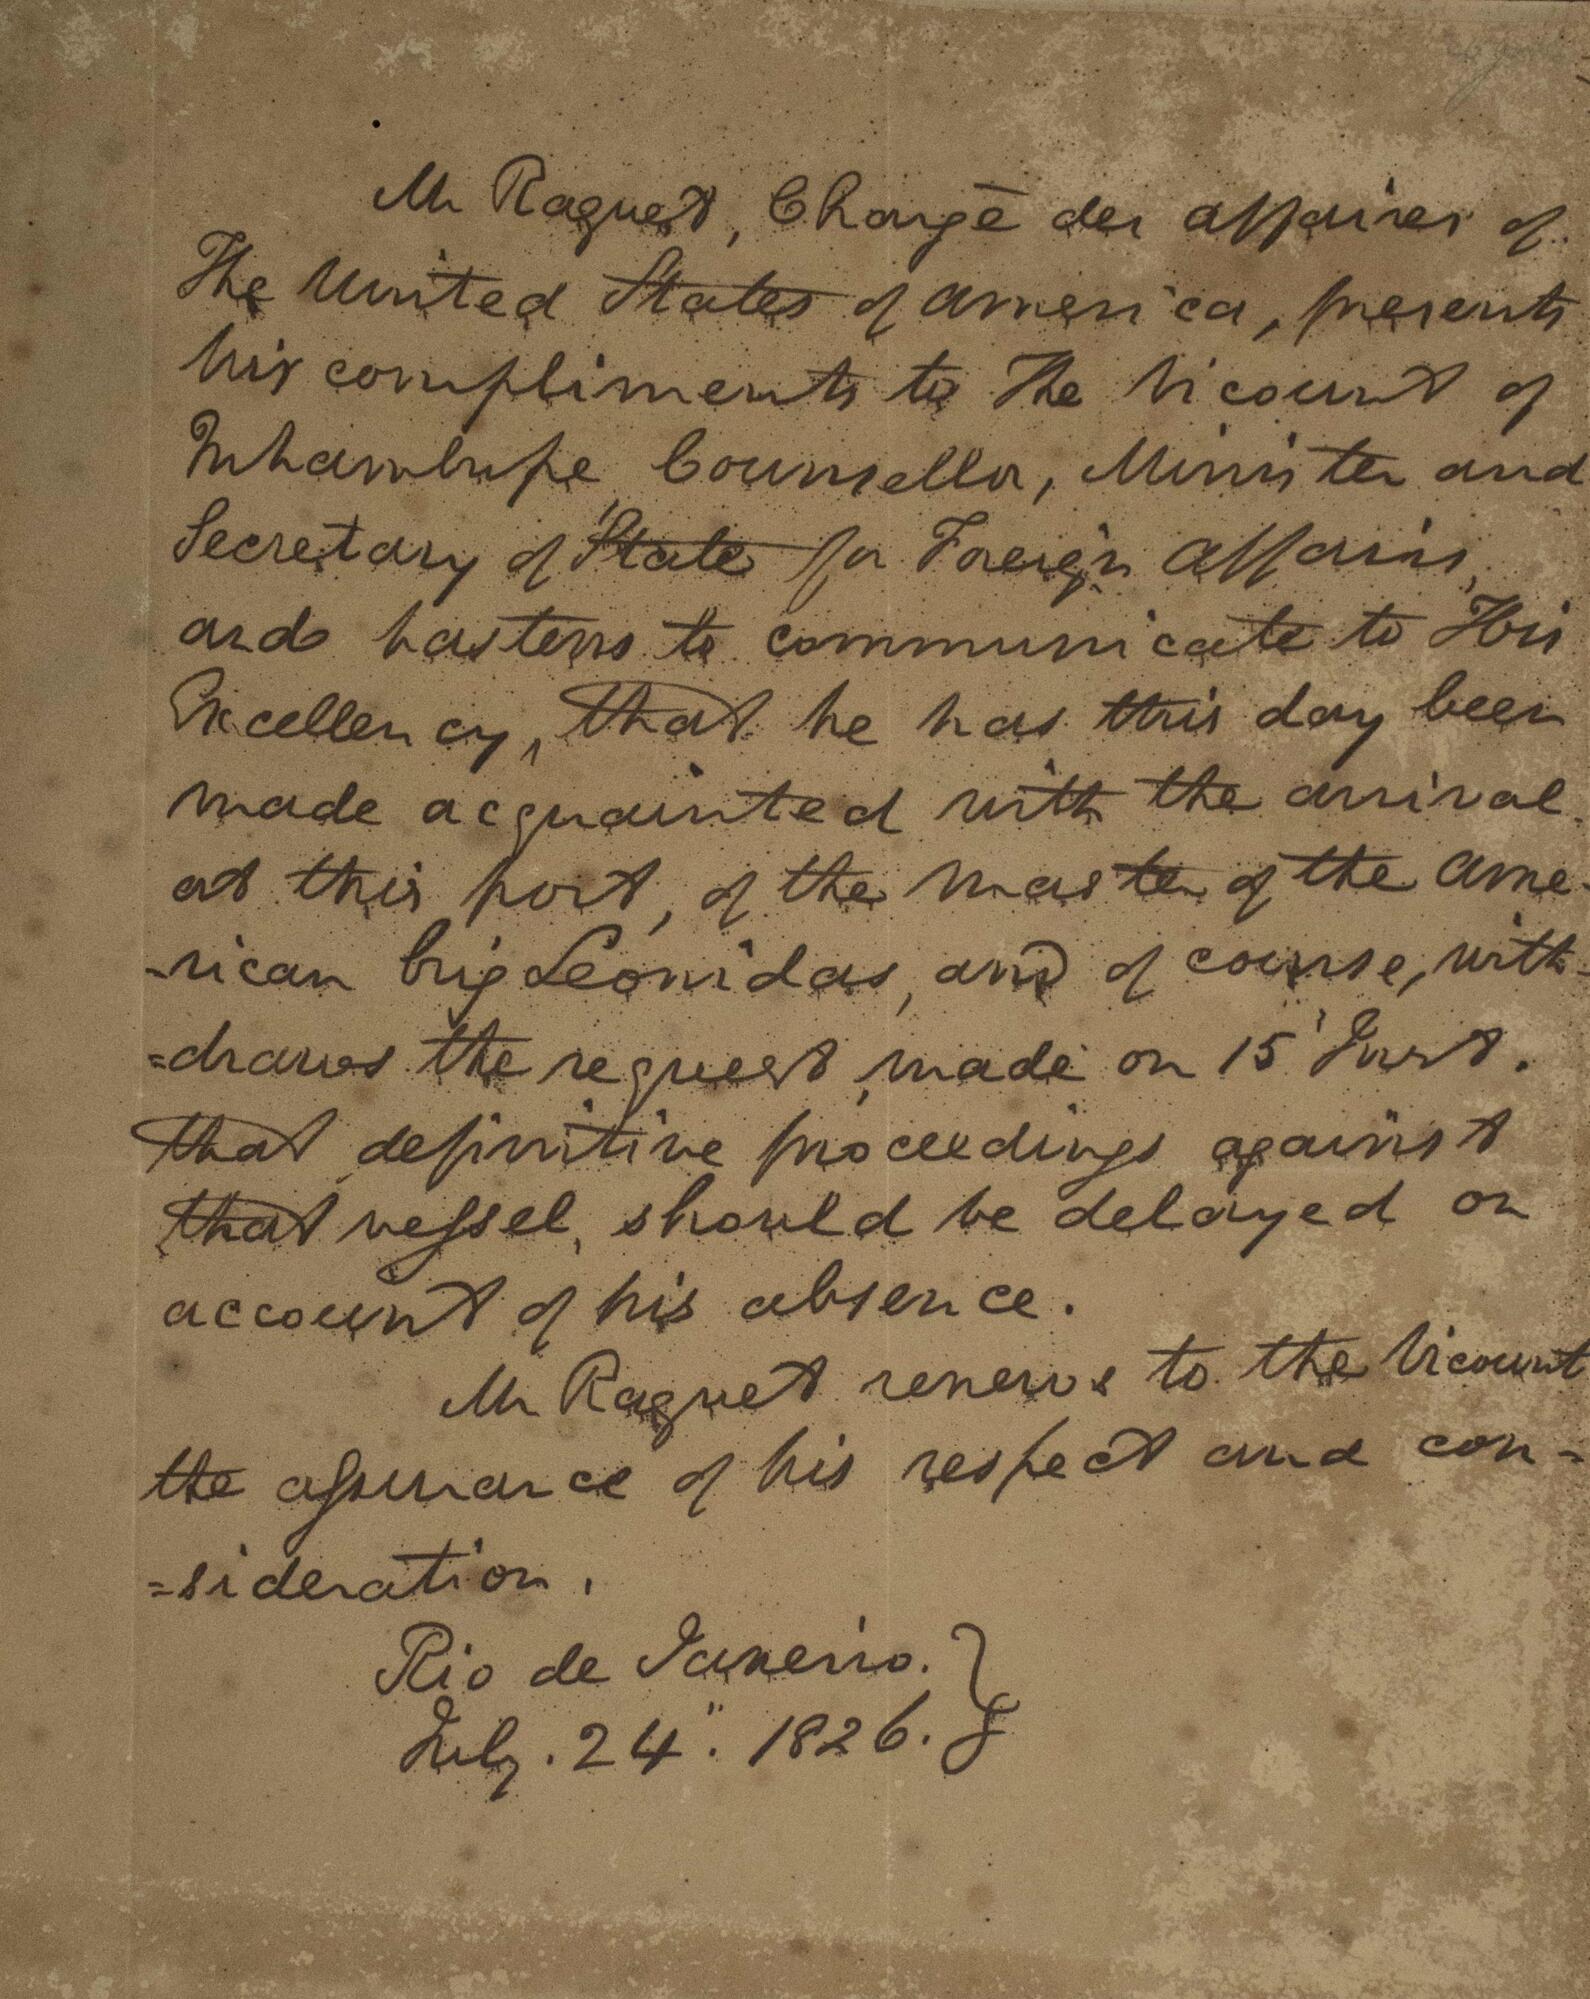 Mr Raguet, Chargé des affaires of
The United States of America, presents
his compliments to The Vicount of
Inhambupe Counsellor, Minister and
Secretary of State for Foreign Affairs,
and hastens to communicate to His
Excellency, that he has this day been
made acquainted with the arrival
at this port, of the master of the Ame-
-rican brig Leonidas, and of course, with-
=draws the request made on 15' Inst.
that definitive proceedings against
that vessel, should be delayed on
account of his absence.
Mr Raguet renews to the Vicount
the assurance of his respect and con=
=sideration.
Rio de Janeiro.
July. 24". 1826.